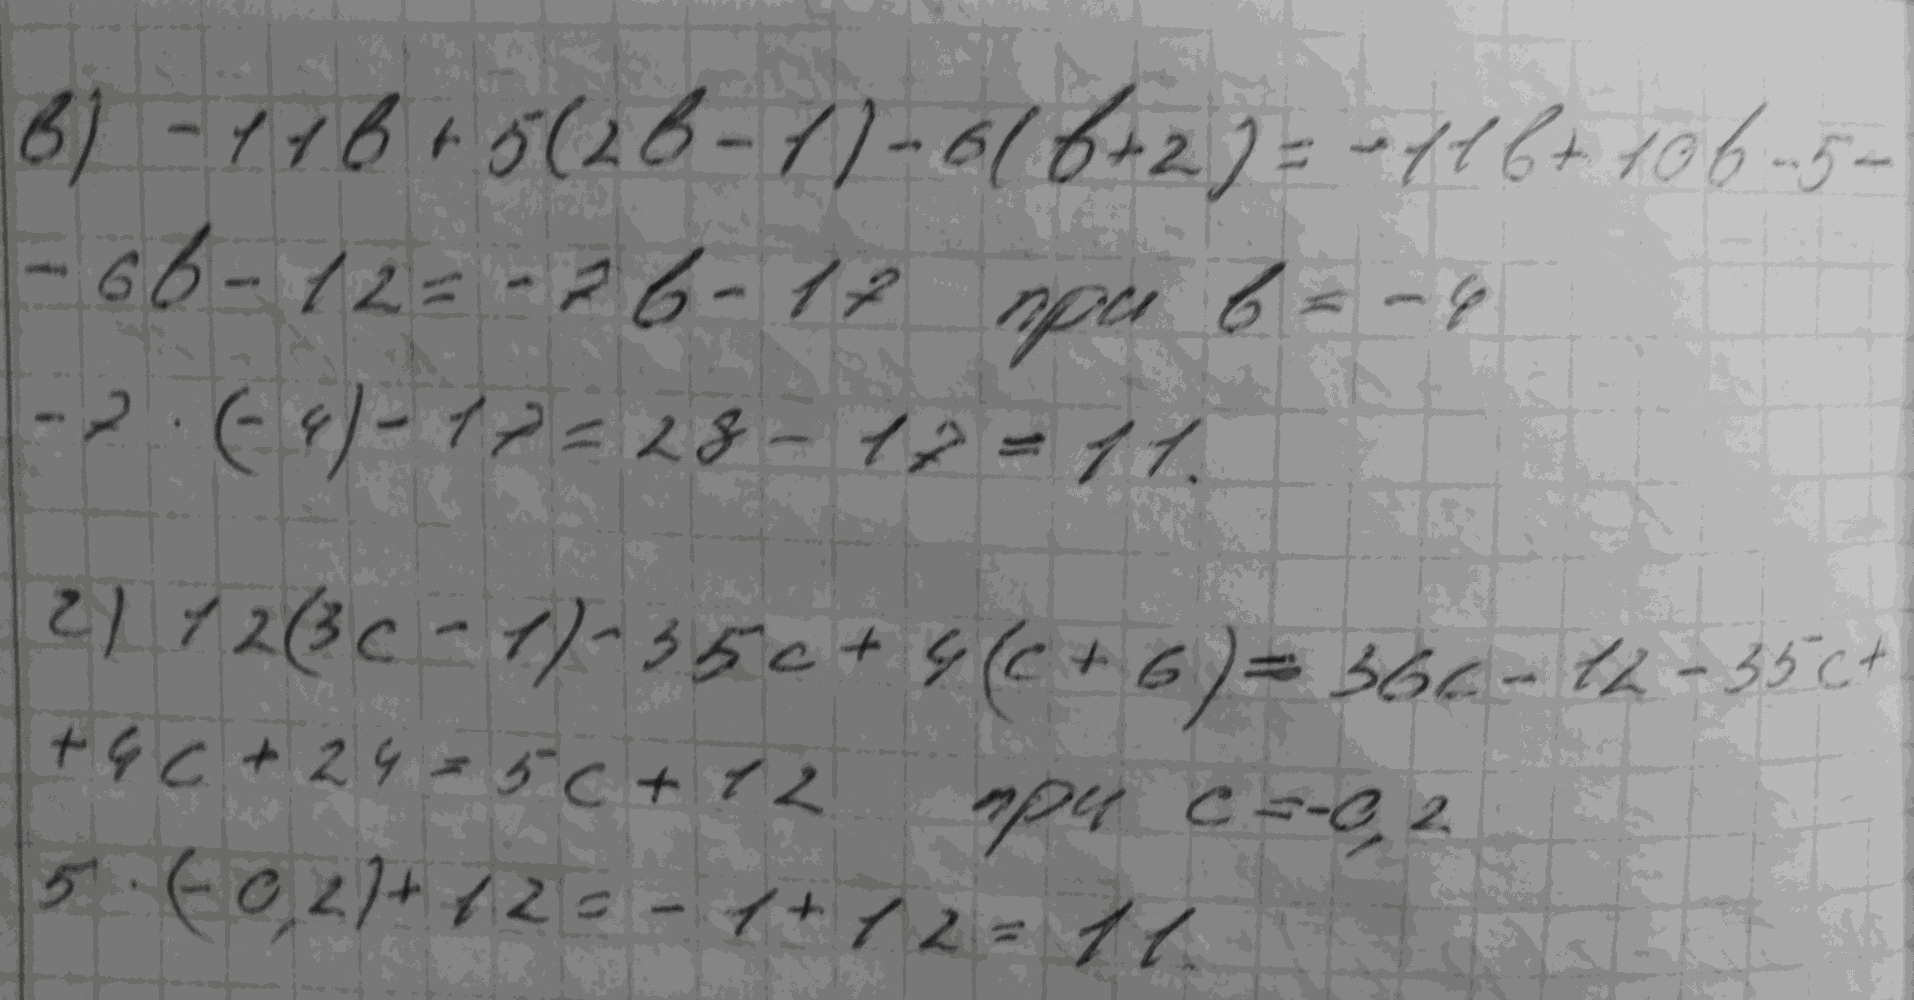 в) -11b + 5(2b - 1) - 6(b+2) = -11b + 10b - 5 -
- 6b - 12 = -7b - 17 при b = -4
-7 · (-4) - 17 = 28 - 17 = 11.
г) 12(3c - 1) - 35c + 4(c + 6) = 36c - 12 - 35c +
+ 4c + 24 = 5c + 12 при c = -0,2
5 · (-0,2) + 12 = -1 + 12 = 11.